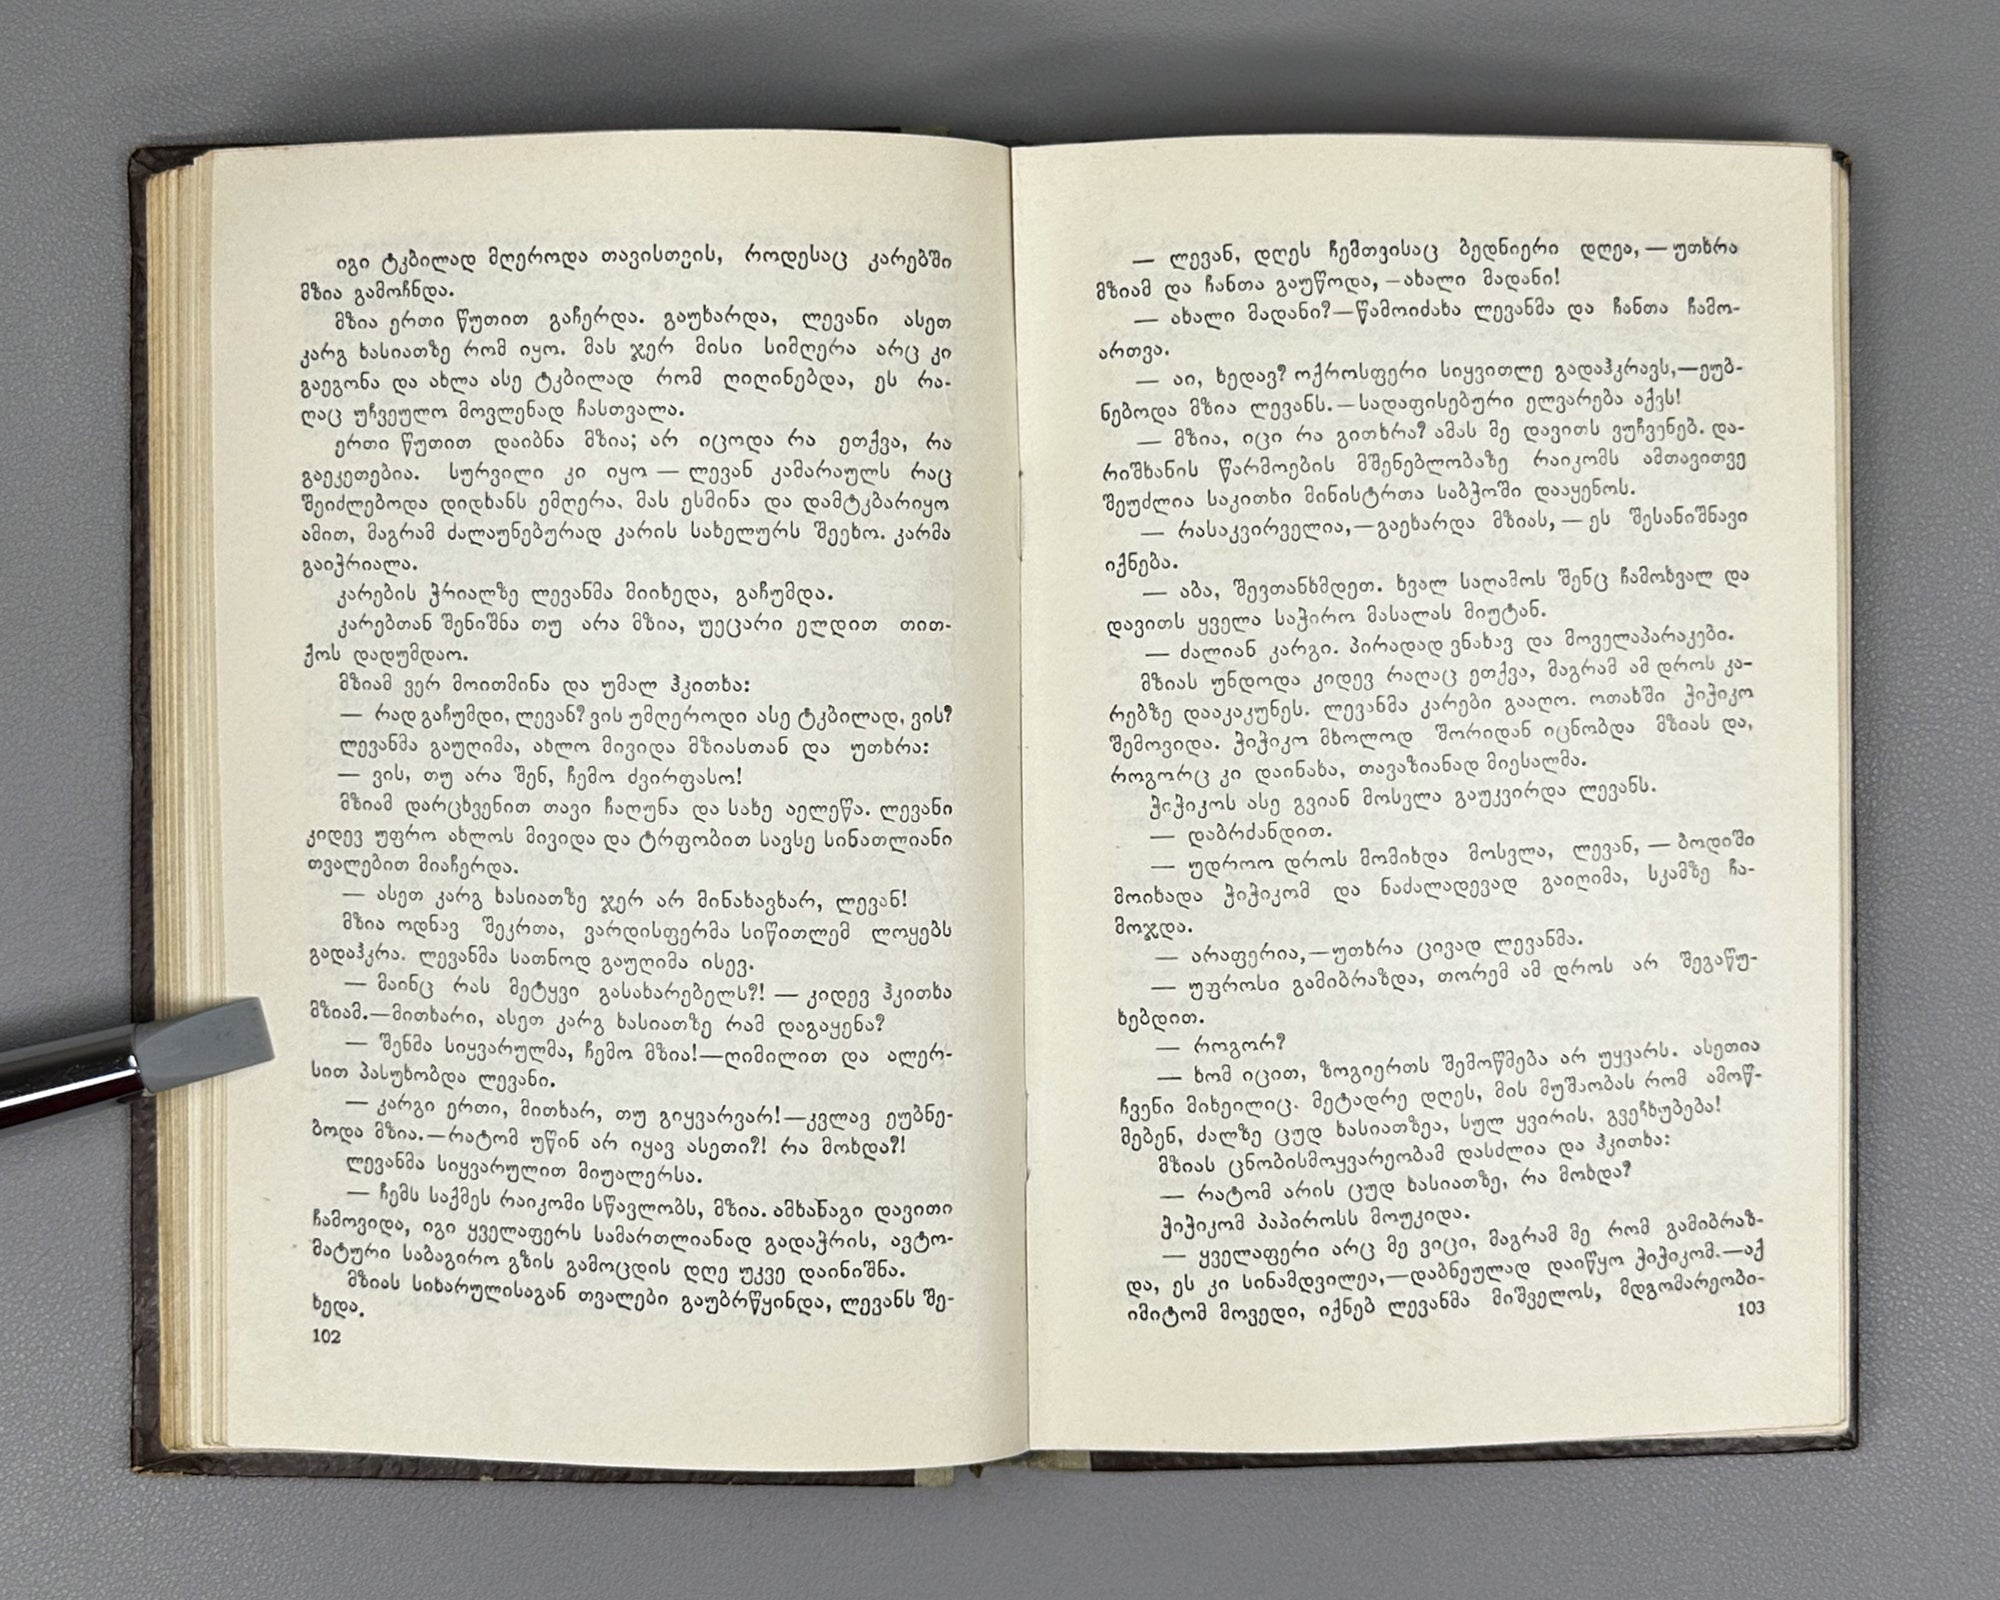 იგი ტკბილად მღეროდა თავისთვის, როდესაც კარებში
მზია გამოჩნდა.
მზია ერთი წუთით გაჩერდა. გაუხარდა, ლევანი ასეთ
კარგ ხასიათზე რომ იყო. მას ჯერ მისი სიმღერა არც კი
გაეგონა და ახლა ასე ტკბილად რომ ღიღინებდა, ეს რა-
ღაც უჩვეულო მოვლენად ჩასთვალა.
ერთი წუთით დაიბნა მზია; არ იცოდა რა ეთქვა, რა
გაეკეთებია. სურვილი კი იყო — ლევან კამარაულს რაც
შეიძლებოდა დიდხანს ემღერა. მას ესმინა და დამტკბარიყო
ამით, მაგრამ ძალაუნებურად კარის სახელურს შეეხო. კარმა
გაიჭრიალა.
კარების ჭრიალზე ლევანმა მიიხედა, გაჩუმდა.
კარებთან შენიშნა თუ არა მზია, უეცარი ელდით თით-
ქოს დადუმდაო.
მზიამ ვერ მოითმინა და უმალ ჰკითხა:
— რად გაჩუმდი, ლევან? ვის უმღეროდი ასე ტკბილად, ვის?
ლევანმა გაუღიმა, ახლო მივიდა მზიასთან და უთხრა:
— ვის, თუ არა შენ, ჩემო ძვირფასო!
მზიამ დარცხვენით თავი ჩაღუნა და სახე აელეწა. ლევანი
კიდევ უფრო ახლოს მივიდა და ტრფობით სავსე სინათლიანი
თვალებით მიაჩერდა.
— ასეთ კარგ ხასიათზე ჯერ არ მინახავხარ, ლევან!
მზია ოდნავ შეკრთა, ვარდისფერმა სიწითლემ ლოყებს
გადაჰკრა. ლევანმა სათნოდ გაუღიმა ისევ.
— მაინც რას მეტყვი გასახარებელს?! — კიდევ ჰკითხა
მზიამ.—მითხარი, ასეთ კარგ ხასიათზე რამ დაგაყენა?
— შენმა სიყვარულმა, ჩემო მზია!—ღიმილით და ალერ-
სით პასუხობდა ლევანი.
— კარგი ერთი, მითხარ, თუ გიყვარვარ!—კვლავ ეუბნე-
ბოდა მზია.—რატომ უწინ არ იყავ ასეთი?! რა მოხდა?!
ლევანმა სიყვარულით მიუალერსა.
— ჩემს საქმეს რაიკომი სწავლობს, მზია. ამხანაგი დავითი
ჩამოვიდა, იგი ყველაფერს სამართლიანად გადაჭრის, ავტო-
მატური საბაგირო გზის გამოცდის დღე უკვე დაინიშნა.
მზიას სიხარულისაგან თვალები გაუბრწყინდა, ლევანს შე-
ხედა.
102
— ლევან, დღეს ჩემთვისაც ბედნიერი დღეა, — უთხრა
მზიამ და ჩანთა გაუწოდა, —ახალი მადანი!
— ახალი მადანი?—წამოიძახა ლევანმა და ჩანთა ჩამო-
ართვა.
— აი, ხედავ? ოქროსფერი სიყვითლე გადაჰკრავს,—ეუბ-
ნებოდა მზია ლევანს.—სადაფისებური ელვარება აქვს!
— მზია, იცი რა გითხრა? ამას მე დავითს ვუჩვენებ. და-
რიშხანის წარმოების მშენებლობაზე რაიკომს ამთავითვე
შეუძლია საკითხი მინისტრთა საბჭოში დააყენოს.
— რასაკვირველია,—გაეხარდა მზიას, — ეს შესანიშნავი
იქნება.
— აბა, შევთანხმდეთ. ხვალ საღამოს შენც ჩამოხვალ და
დავითს ყველა საჭირო მასალას მიუტან.
— ძალიან კარგი. პირადად ვნახავ და მოველაპარაკები.
მზიას უნდოდა კიდევ რაღაც ეთქვა, მაგრამ ამ დროს კა-
რებზე დააკაკუნეს. ლევანმა კარები გააღო. ოთახში ჭიჭიკო
შემოვიდა. ჭიჭიკო მხოლოდ შორიდან იცნობდა მზიას და,
როგორც კი დაინახა, თავაზიანად მიესალმა.
ჭიჭიკოს ასე გვიან მოსვლა გაუკვირდა ლევანს.
— დაბრძანდით.
— უდროო დროს მომიხდა მოსვლა, ლევან, — ბოდიში
მოიხადა ჭიჭიკომ და ნაძალადევად გაიღიმა, სკამზე ჩა-
მოჯდა.
— არაფერია,—უთხრა ცივად ლევანმა.
— უფროსი გამიბრაზდა, თორემ ამ დროს არ შეგაწუ-
ხებდით.
— როგორ?
— ხომ იცით, ზოგიერთს შემოწმება არ უყვარს. ასეთია
ჩვენი მიხეილიც. მეტადრე დღეს, მის მუშაობას რომ ამოწ-
მებენ, ძალზე ცუდ ხასიათზეა, სულ ყვირის. გვეჩხუბება!
მზიას ცნობისმოყვარეობამ დასძლია და ჰკითხა:
— რატომ არის ცუდ ხასიათზე, რა მოხდა?
ჭიჭიკომ პაპიროსს მოუკიდა.
— ყველაფერი არც მე ვიცი, მაგრამ მე რომ გამიბრაზ-
და, ეს კი სინამდვილეა,—დაბნეულად დაიწყო ჭიჭიკომ.—აქ
იმიტომ მოვედი, იქნებ ლევანმა მიშველოს, მდგომარეობი-
103